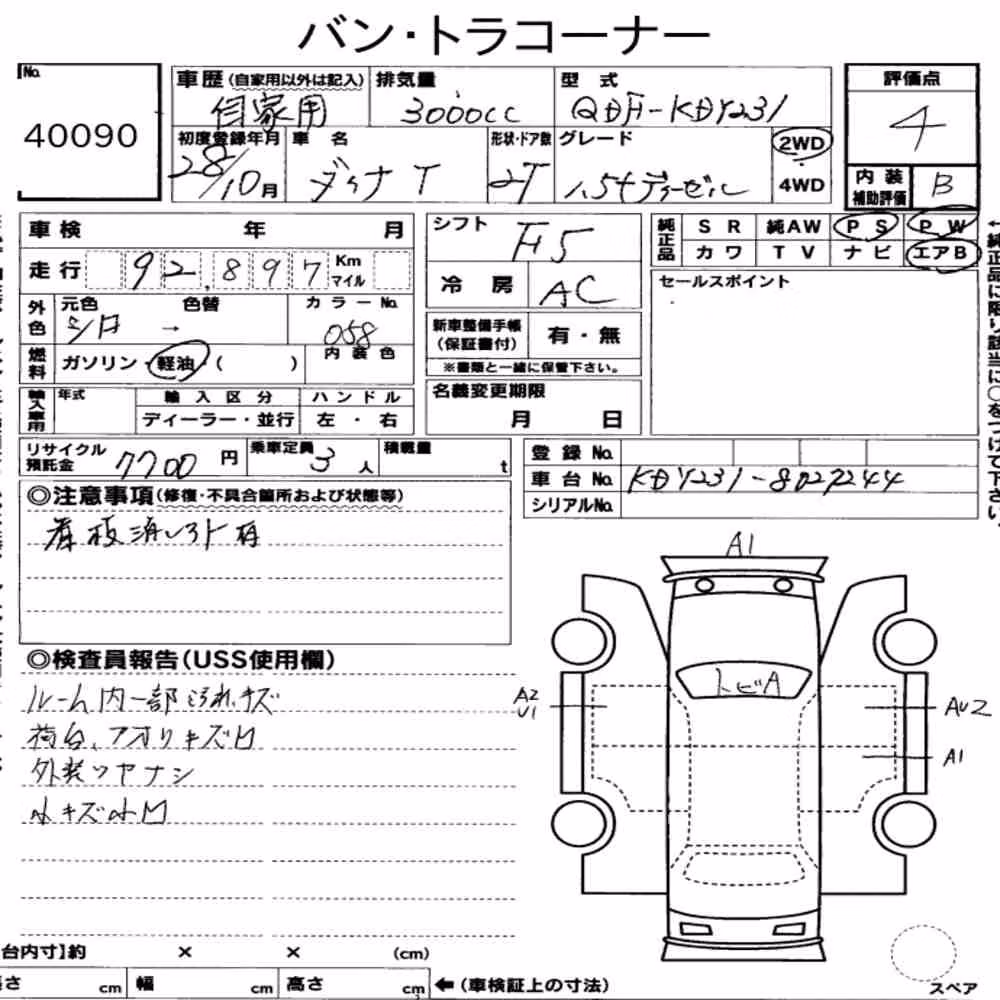 バン・トラコーナー
No.
40090
車歴 (自家用以外は記入)
自家用
排気量
3000cc
型 式
QDF-KDY231
評価点
4
初度登録年月
28/10月
車 名
ダイナT
形状・ドア数
2T
グレード
1.5tディーゼル
2WD
4WD
内 装
補助評価
B
車 検 年 月
走 行 92,897 Km マイル
シフト
F5
純正品
S R 純AW P S P W
カ ワ T V ナ ビ エアB
外色
元色 色替 カラーNo.
シロ → 058
冷 房 AC
セールスポイント
燃料
ガソリン・軽油・( )
内 装 色
新車整備手帳
(保証書付)
有・無
※書類と一緒に保管下さい。
輸入車用
年式
輸 入 区 分
ハ ン ド ル
ディーラー・並行
左 ・ 右
名義変更期限
月 日
リサイクル
預託金 7700 円
乗車定員
3 人
積載量
t
登 録 No.
車 台 No. KDY231-8027244
シリアルNo.
◎注意事項(修復・不具合箇所および状態等)
看板消し跡有
◎検査員報告(USS使用欄)
ルーム内一部よごれ、キズ
荷台、アオリキズ凹
外装ツヤナシ
小キズ小凹
A1
トビA
A2
U1
AU2
A1
台内寸】約 × × (cm)
長さ cm 幅 cm 高さ cm ←(車検証上の寸法)
スペア
←純正品に限り該当に○をつけて下さい。